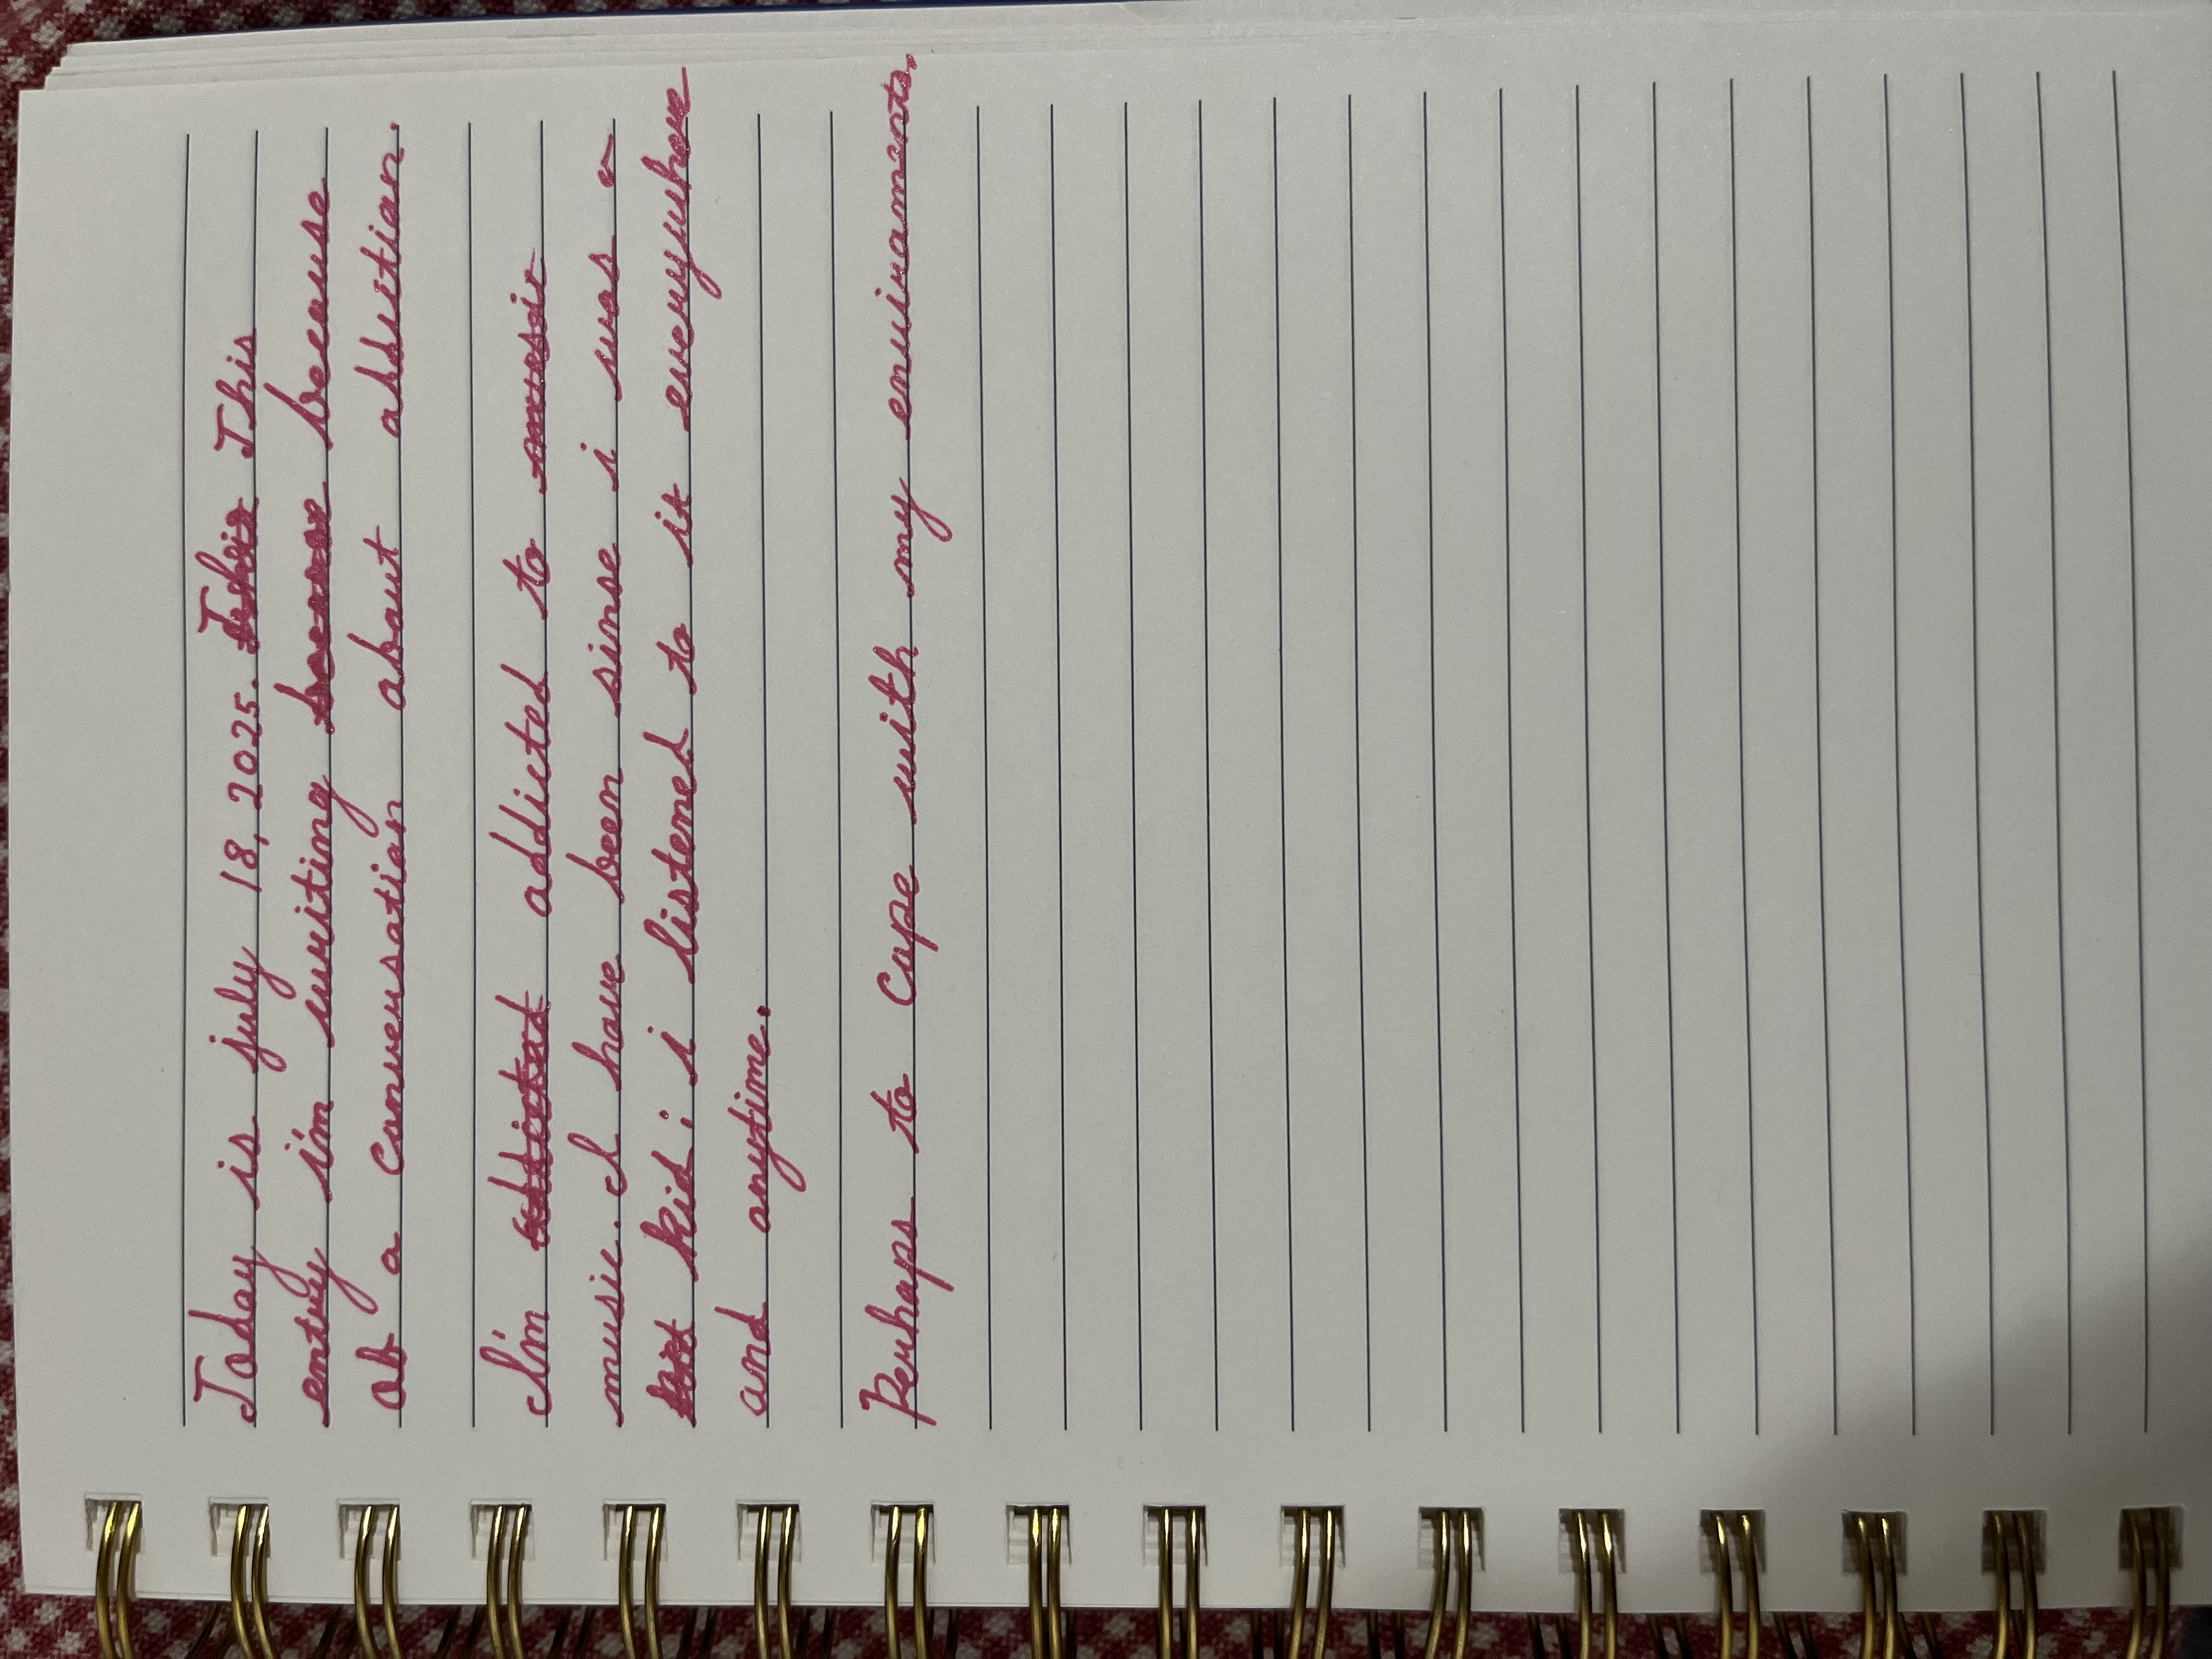 Today is july 18, 2025. This This
entry i'm writing because
of a conversation about addiction.
I'm addicted to music
music. I have been sinse i was a
kid; i listened to it everywhere
and anytime.
Perhaps to Cope with my enviroments.